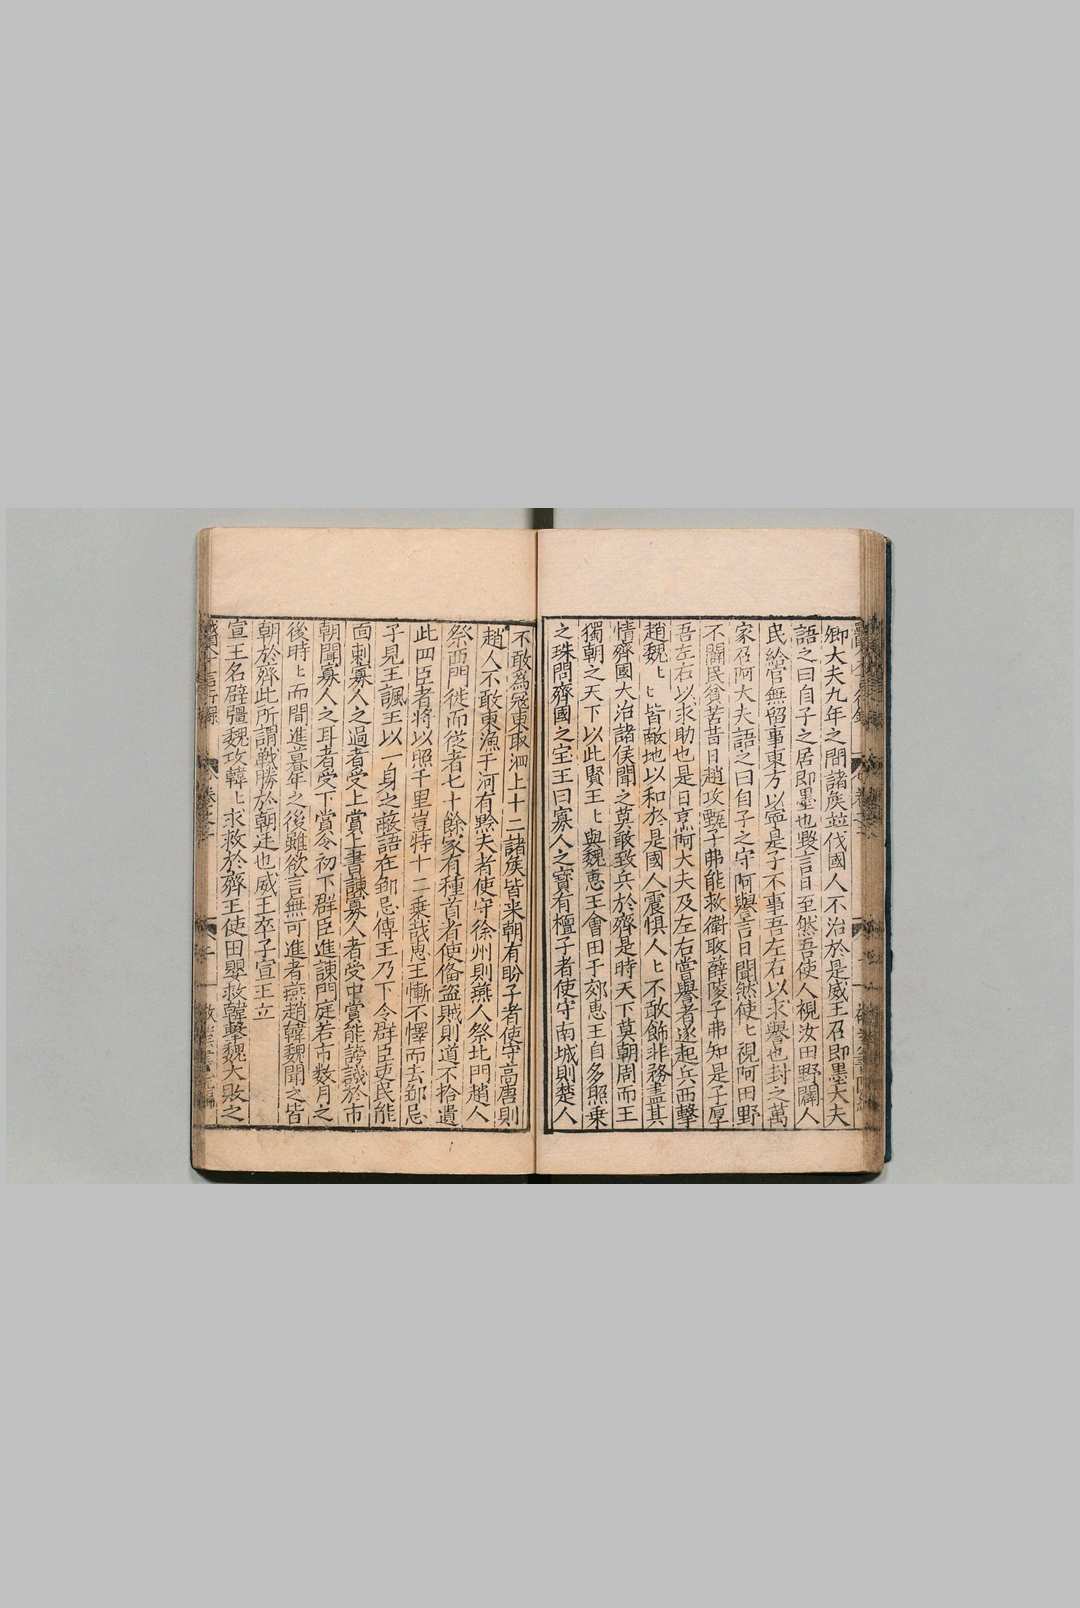 卿大夫九年之間諸矦並伐國人不治於是威王召即墨大夫
語之曰自子之居即墨也毀言日至然吾使人視汝田野闢人
民給官無留事東方以寧是子不事吾左右以求譽也封之萬
家召阿大夫語之曰自子之守阿譽言日聞然使〻視阿田野
不闢民貧苦昔日趙攻甄子弗能救衛取薛陵子弗知是子厚
吾左右以求助也是日烹阿大夫及左右嘗譽者遂起兵西擊
趙魏〻〻皆敵地以和於是國人震惧人〻不敢飾非務盡其
情齊國大治諸侯聞之莫敢致兵於齊是時天下莫朝周而王
獨朝之天下以此賢王〻與魏惠王會田于郊惠王自多照乗
之珠問齊國之宝王曰寡人之寶有檀子者使守南城則楚人
不敢為冦東取泗上十二諸矦皆来朝有盼子者使守高唐則
趙人不敢東漁于河有黔夫者使守徐州則燕人祭北門趙人
祭西門徙而從者七十餘家有種首者使偹盗賊則道不拾遺
此四臣者將以照千里豈特十二乗哉惠王慚不懌而去鄒忌
子見王諷王以一身之蔽語在鄒忌傳王乃下令群臣吏民能
面刺寡人之過者受上賞上書諫寡人者受中賞能謗議於市
朝聞寡人之耳者受下賞令初下群臣進諫門庭若市数月之
後時〻而間進暮年之後雖欲言無可進者燕趙韓魏聞之皆
朝於齊此所謂戦勝於朝廷也威王卒子宣王立
宣王名辟彊魏攻韓〻求救於齊王使田嬰救韓擊魏大敗之